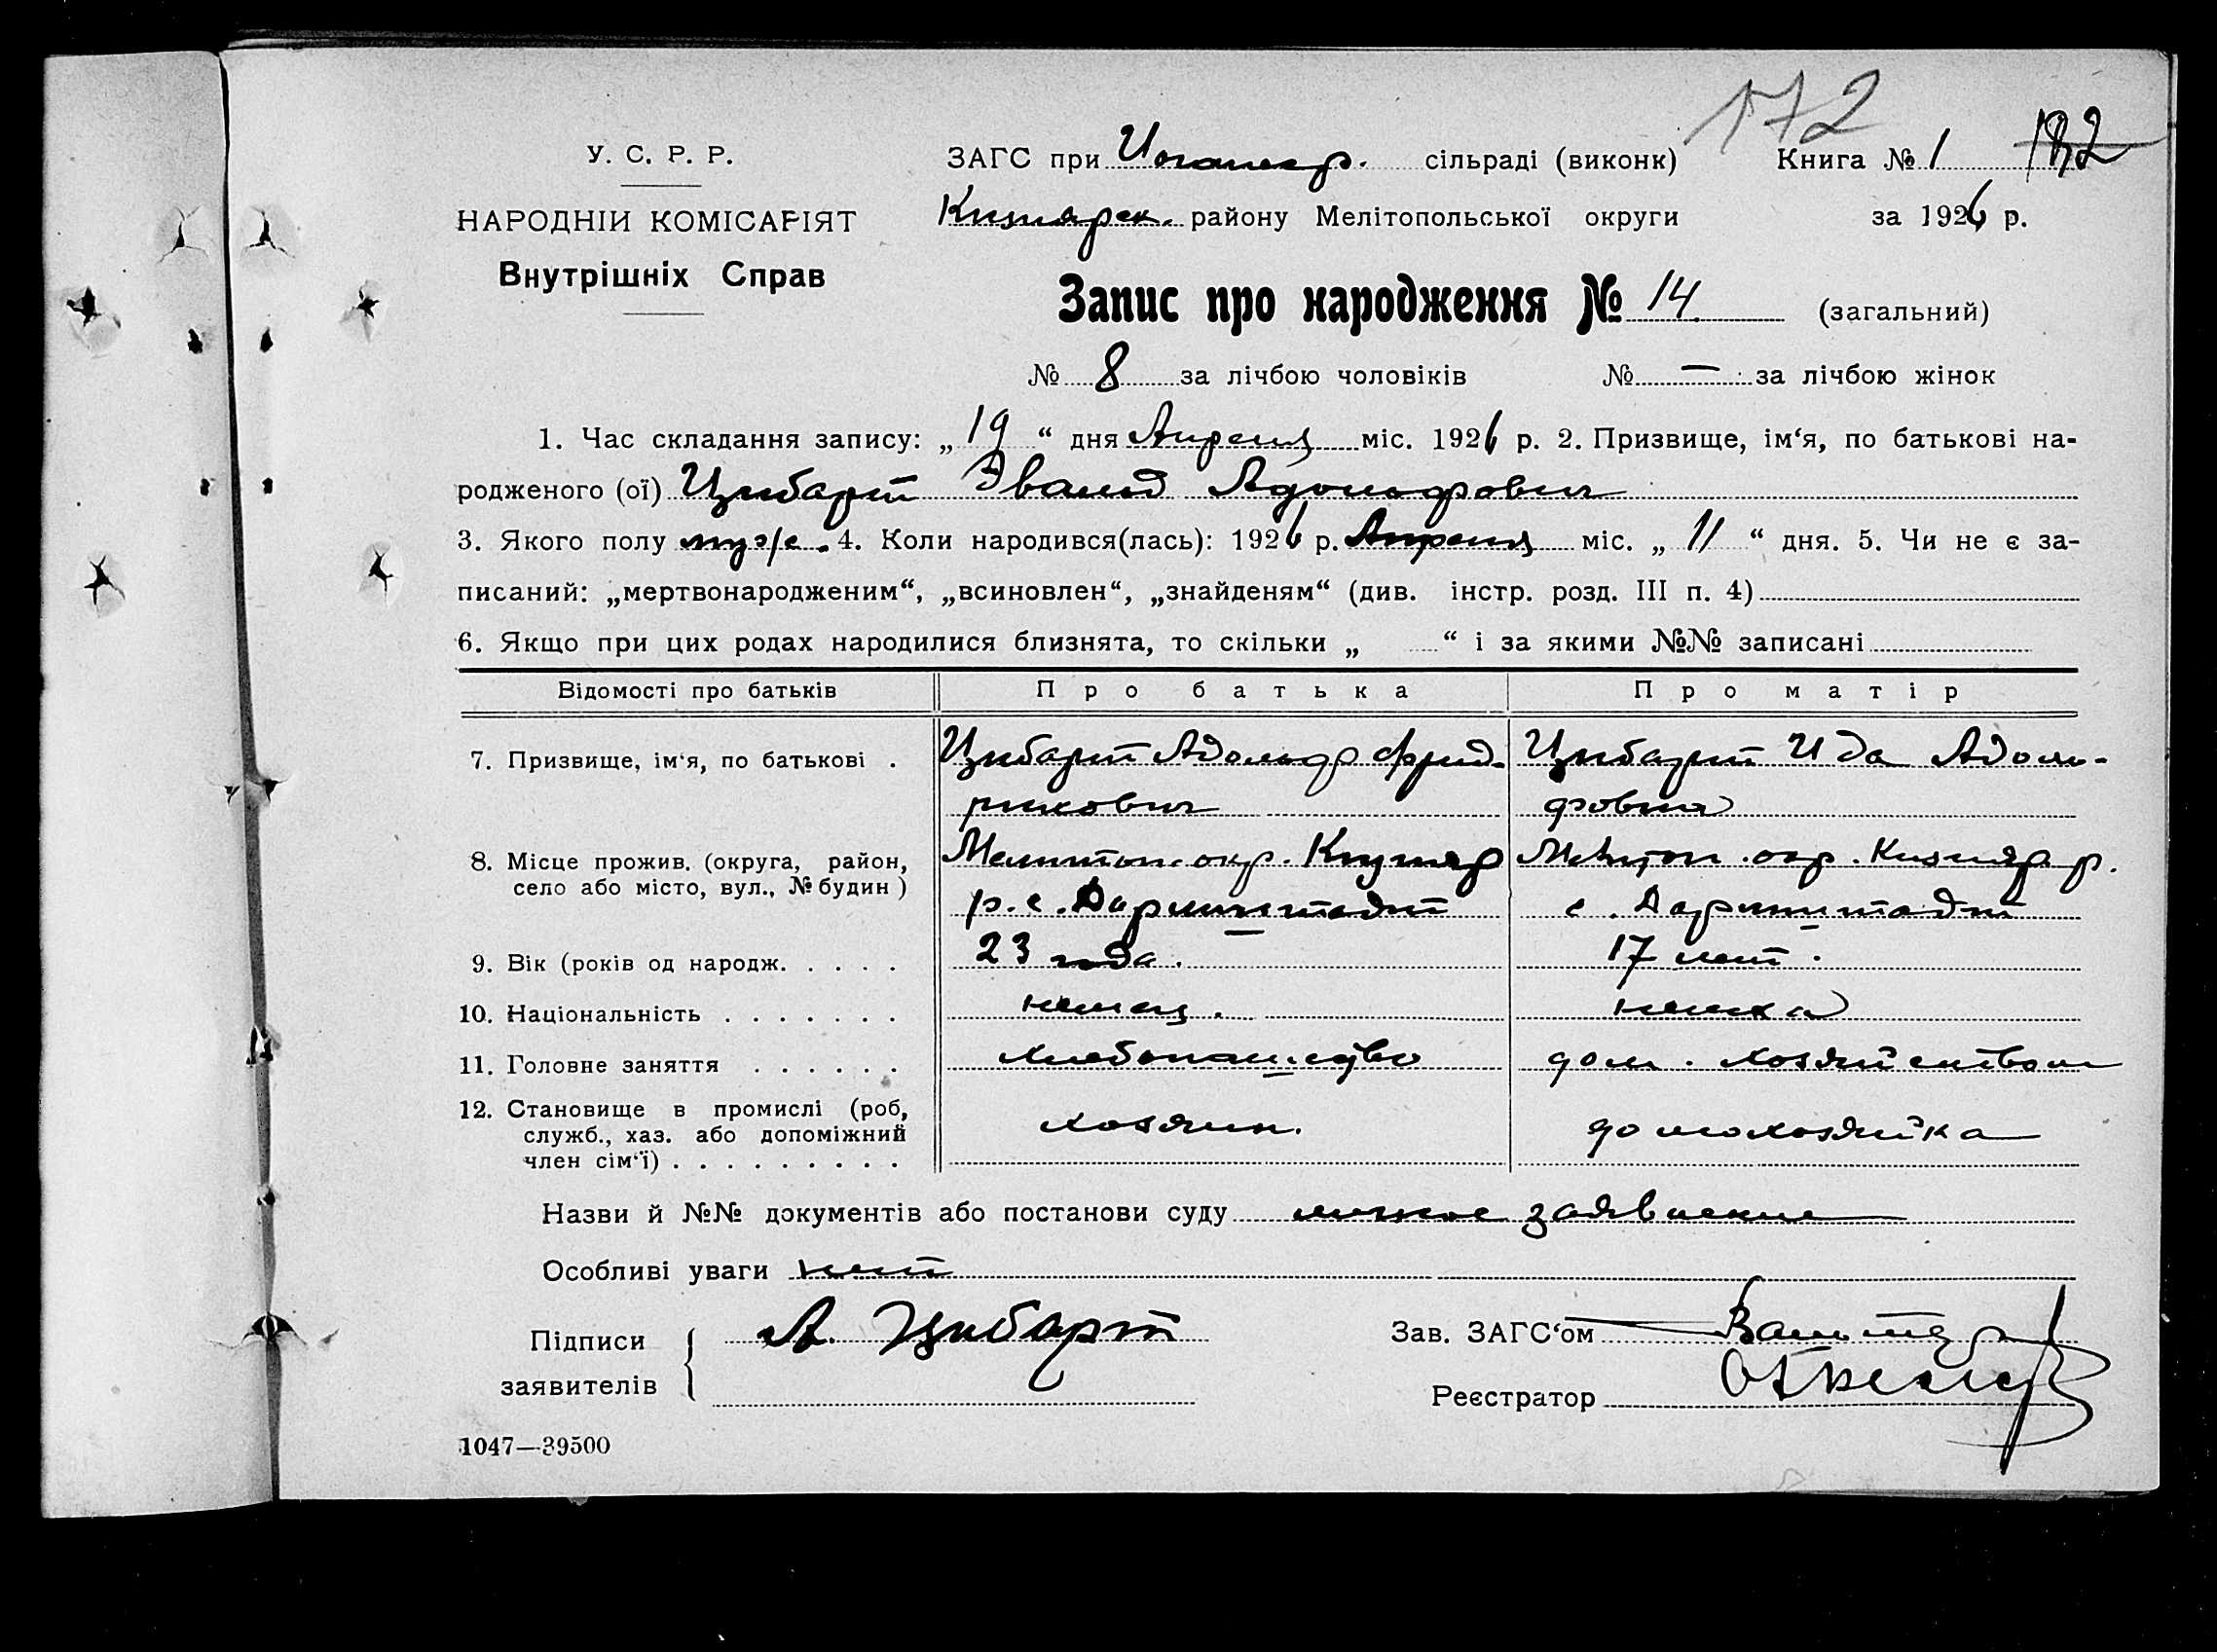 172
У. С. Р. Р.
НАРОДНІЙ КОМІСАРІЯТ
Внутрішніх Справ
ЗАГС при сільраді (виконк) Книга № 1 182
району Мелітопольської округи за 1926 р.
Запис про народження № 14 (загальний)
№ 8 за лічбою чоловіків № — за лічбою жінок
1. Час складання запису: „19“ дня Апреля міс. 1926 р. 2. Призвище, ім‘я, по батькові на-
родженого (ої) Цибарт Эвальд Адольфович
3. Якого полу муж. 4. Коли народився(лась): 1926 р. Апреля міс. „11“ дня. 5. Чи не є за-
писаний: „мертвонародженим“, „всиновлен“, „знайденям“ (див. інстр. розд. III п. 4)
6. Якщо при цих родах народилися близнята, то скільки „ “ і за якими №№ записані
Відомості про батьків Про батька Про матір
7. Призвище, ім‘я, по батькові . Цибарт Адольф Фрид- Цибарт Ида Адоль-
рихович фовна
8. Місце прожив. (округа, район, Мелитоп. окр. Кизияр Мелитоп. окр. Кизияр р.
село або місто, вул., № будин) р. с. Дармштадт с. Дармштадт
9. Вік (років од народж. . . . . 23 года. 17 лет.
10. Національність . . . . . . . немец. немка
11. Головне заняття . . . . . . хлебопашество дом. хозяйством
12. Становище в промислі (роб, хозяин. домохозяйка
служб., хаз. або допоміжний
член сім‘ї) . . . . . . . . .
Назви й №№ документів або постанови суду личное заявление
Особливі уваги нет
Підписи заявителів А. Цибарт
Зав. ЗАГС‘ом
Реєстратор
1047—39500